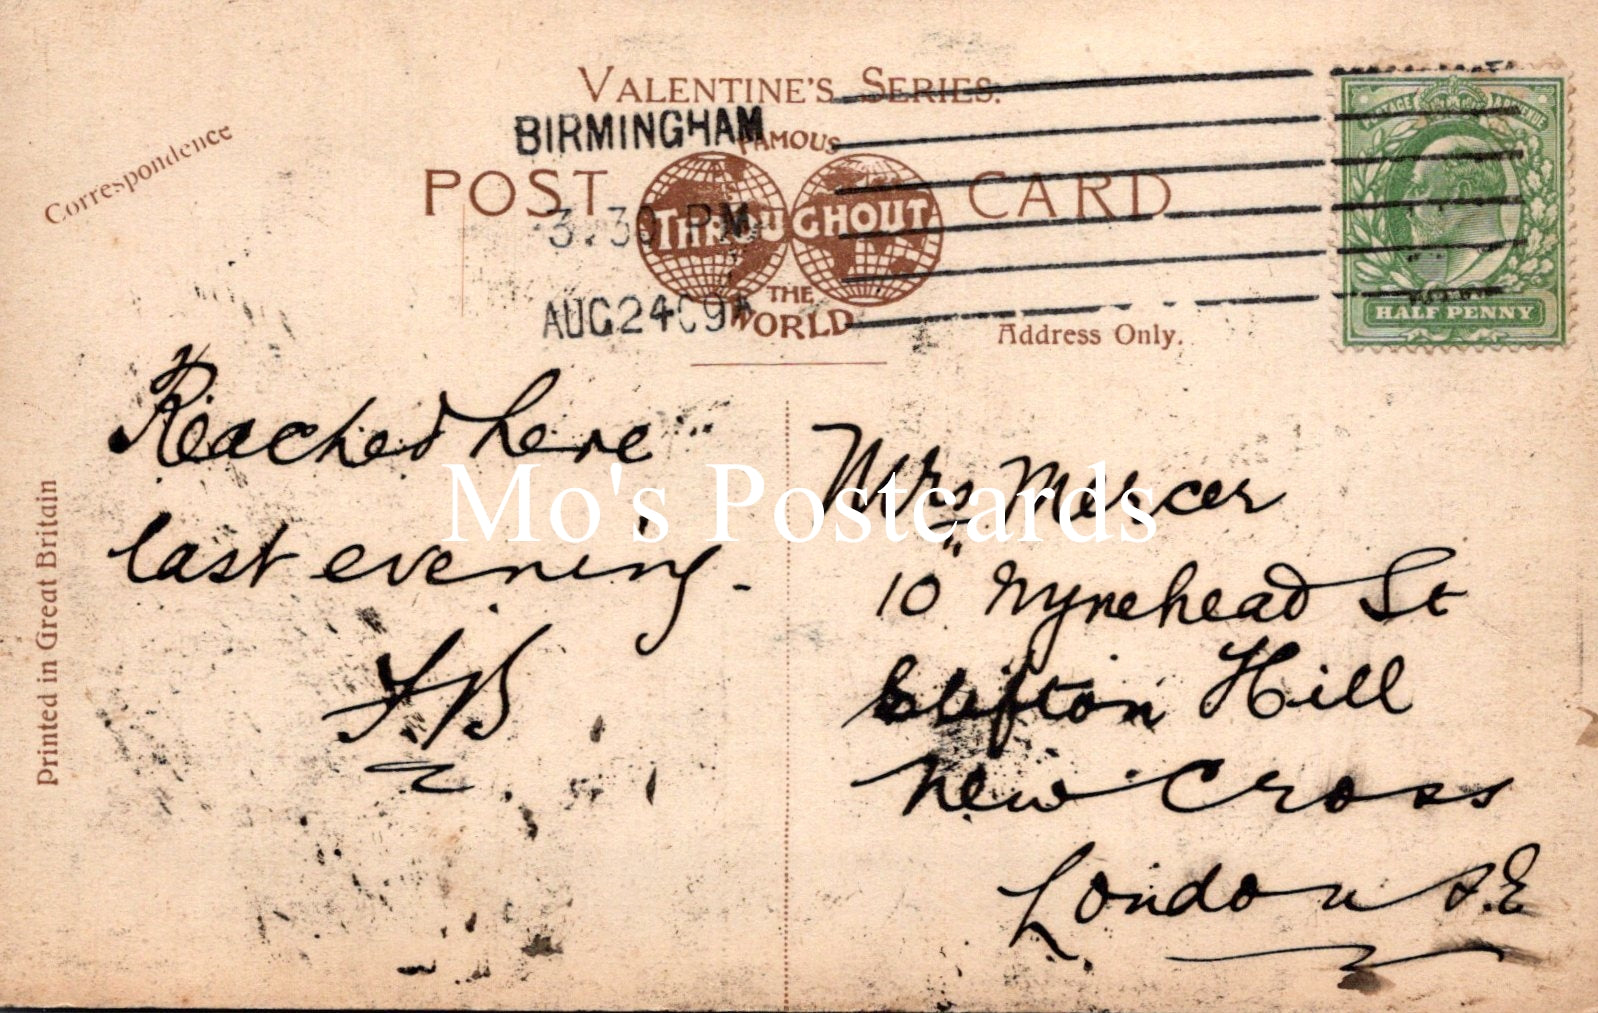 VALENTINE'S SERIES.
BIRMINGHAM
FAMOUS
Correspondence
POST CARD
THROUGHOUT
3.30 PM
THE
AUG 24 09
WORLD
Address Only.
POSTAGE REVENUE
HALF PENNY
Printed in Great Britain
Reached here
last evening.
F.B
Mrs Mercer
10 Nynehead St
Clifton Hill
New Cross
London S.E
Mo's Postcards